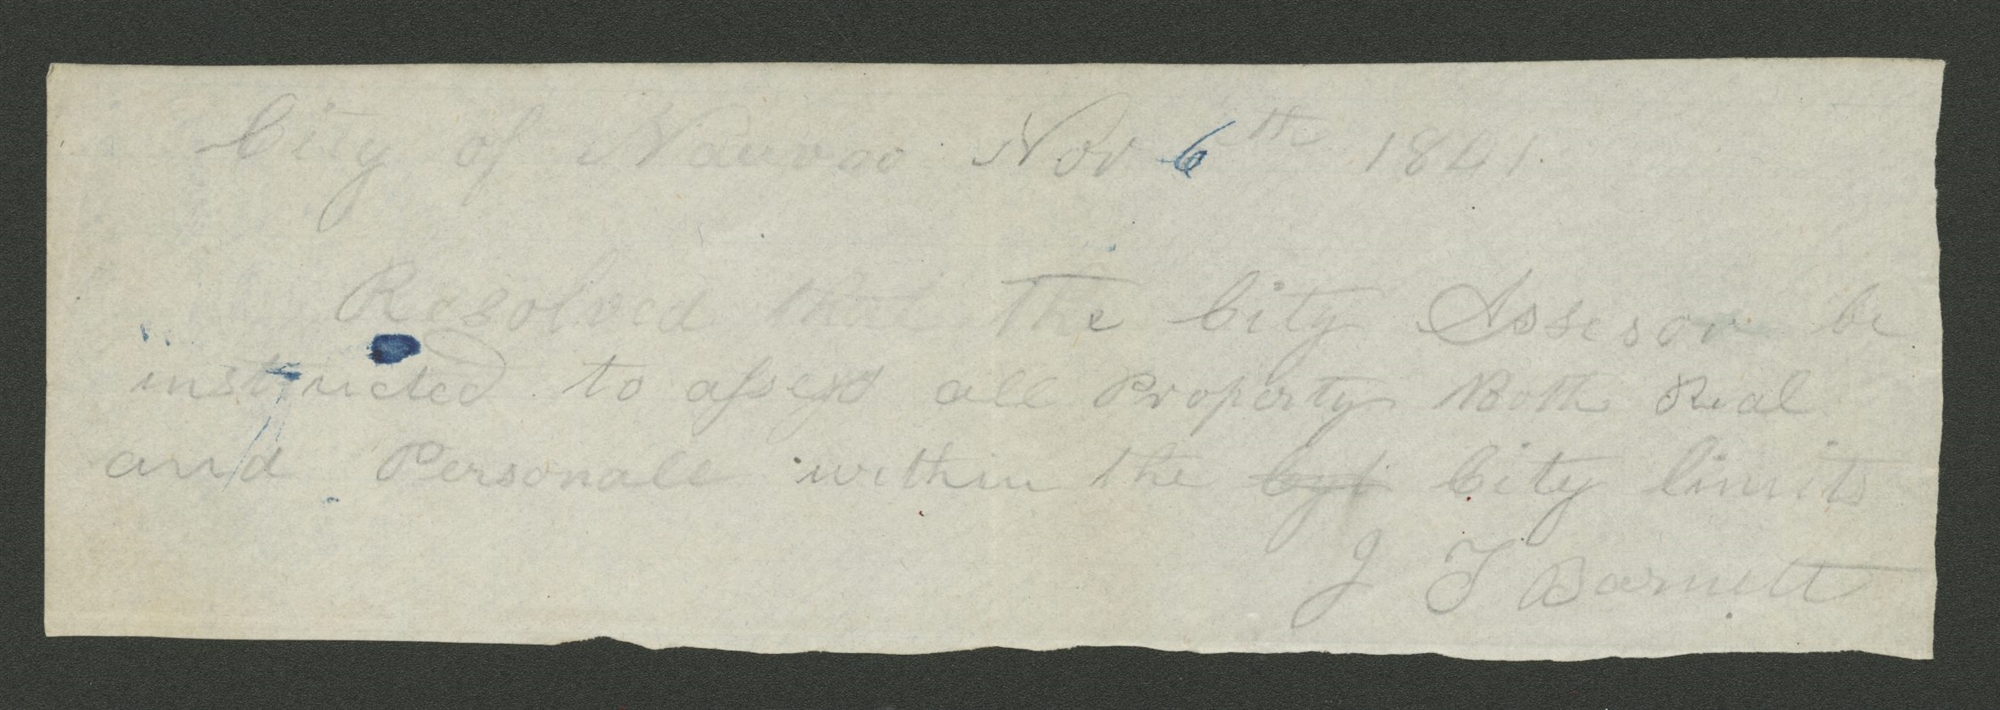 City of Nauvoo Nov 6th 1841
Resolved that The City Assesor be
instructed to assess all Property Both Real
and Personall within the City limits
J T Barnett